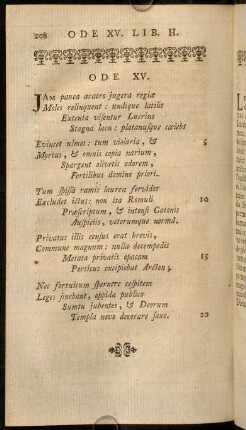 208 ODE XV. LIB. II.
ODE XV.
JAM pauca aratro jugera regiæ
Moles relinquent: undique latiùs
Extenta visentur Lucrino
Stagna lacu: platanusque cœlebs
Evincet ulmos: tum violaria, & 5
Myrtus, & omnis copia narium,
Spargent olivetis odorem,
Fertilibus domino priori.
Tum spissa ramis laurea fervidos
Excludet ictus: non ita Romuli 10
Præscriptum, & intonsi Catonis
Auspiciis, veterumque normâ.
Privatus illis census erat brevis,
Commune magnum: nulla decempedis
Metata privatis opacam 15
Porticus excipiebat Arcton;
Nec fortuitum spernere cespitem
Leges sinebant, oppida publico
Sumtu jubentes, & Deorum
Templa novo decorare saxo. 20